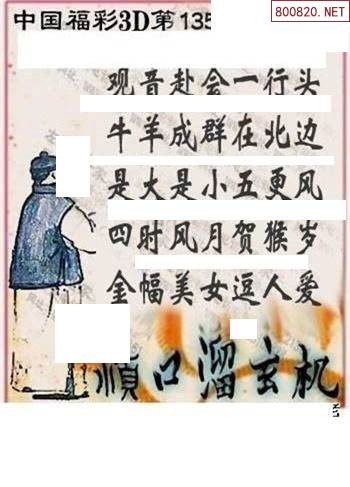 800820.NET
中国福彩3D第135
观音赴会一行头
牛羊成群在北边
是大是小五更风
四时风月贺猴岁
金幅美女逗人爱
顺口溜玄机